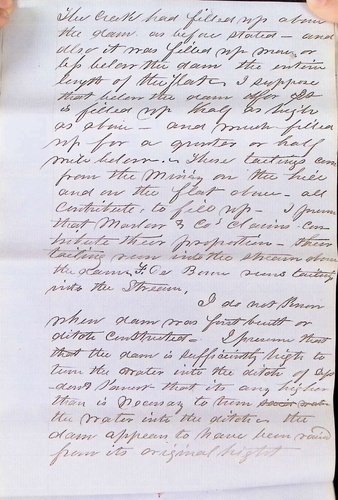 The Creek had filled up above
the dam as before stated - and
also it was filled up more or
less below the dam the entire
length of the flat. I suppose
that below the dam
is filled up half as high
as above - and much filled
up for a quarter or half
mile below. - These tailings come
from the Mining on the hill
and on the flat above - all
Contribute, to fill up - I presume
that & Co's Claims con-
tribute their proportion - their
tailing run into the stream above
the dam, runs tailings
into the Stream.
I do not Know
when dam was first built or
ditch constructed - I presume that
that the dam is sufficiently high to
turn the water into the ditch of
dont Know that its any higher
than is necessary to turn
the water into the ditch - the
dam appears to have been raised
from its original hight